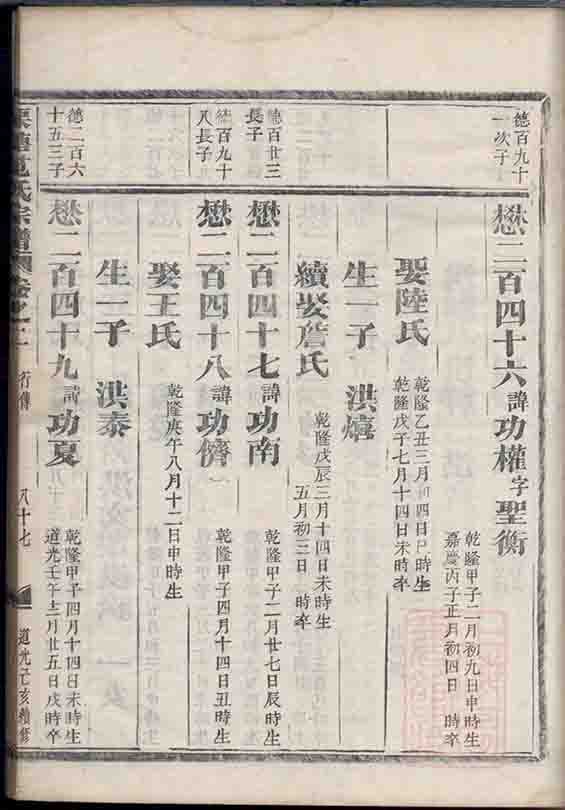 德百九十
一次子
懋二百四十六諱功權字聖衡
乾隆甲子二月初九日申時生
嘉慶丙子正月初四日 時卒
娶陸氏
乾隆乙丑三月初四日巳時生
乾隆戊子七月十四日未時卒
生一子 洪熺
續娶詹氏
乾隆戊辰三月十四日未時生
五月初三日 時卒
德百廿三
長子
懋二百四十七諱功南
乾隆甲子二月廿七日辰時生
德百九十
八長子
懋二百四十八諱功儕
乾隆甲子四月十四日丑時生
娶王氏
乾隆庚午八月十二日申時生
生一子 洪泰
德二百六
十五三子
懋二百四十九諱功夏
乾隆甲子四月十四日未時生
道光壬午三月廿五日戌時卒
氏宗譜
行傳
八十七
道光己亥續修